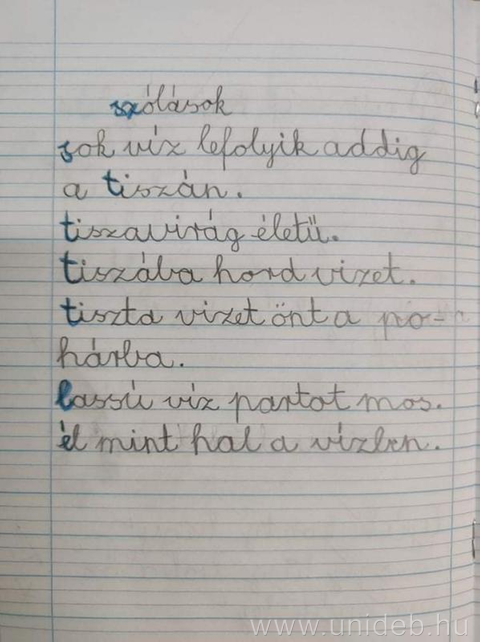 szólások
sok víz lefolyik addig
a tiszán.
tiszavirág életű.
tiszába hord vizet.
tiszta vizet önt a po-
hárba.
lassú víz partot mos.
él mint hal a vízben.
www.unideb.hu